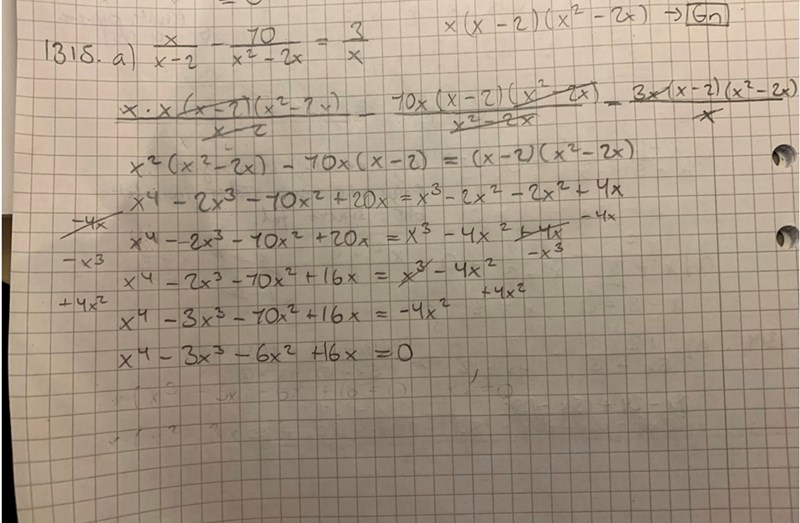 x(x-2)(x²-2x) → Gn
1315. a) x/(x-2) - 10/(x²-2x) = 3/x
x·x(x-2)(x²-2x)/(x-2) - 10x(x-2)(x²-2x)/(x²-2x) = 3x(x-2)(x²-2x)/x
x²(x²-2x) - 10x(x-2) = (x-2)(x²-2x)
x⁴ - 2x³ - 10x² + 20x = x³ - 2x² - 2x² + 4x
-4x x⁴ - 2x³ - 10x² + 20x = x³ - 4x² + 4x -4x
-x³ x⁴ - 2x³ - 10x² + 16x = x³ - 4x² -x³
+4x² x⁴ - 3x³ - 10x² + 16x = -4x² +4x²
x⁴ - 3x³ - 6x² + 16x = 0